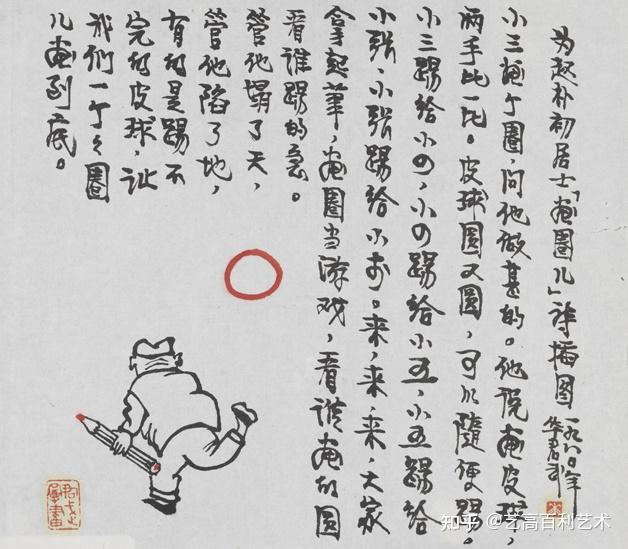 为赵朴初居士「画圈儿」诗插图
一九八〇年
华君武
小三画个圈,问他做甚的。他说画皮球,
两手比一比。皮球圆又圆,可以隨便踢。
小三踢给小四,小四踢给小五,小五踢给
小张,小张踢给小李。来,来,来,大家
拿起笔,画圈当游戏,看谁画的圆
看谁踢的急。
管他塌了天,
管他陷了地,
有的是踢不
完的皮球,让
我们一个々圈
儿画到底。
知乎 @艺高百利艺术